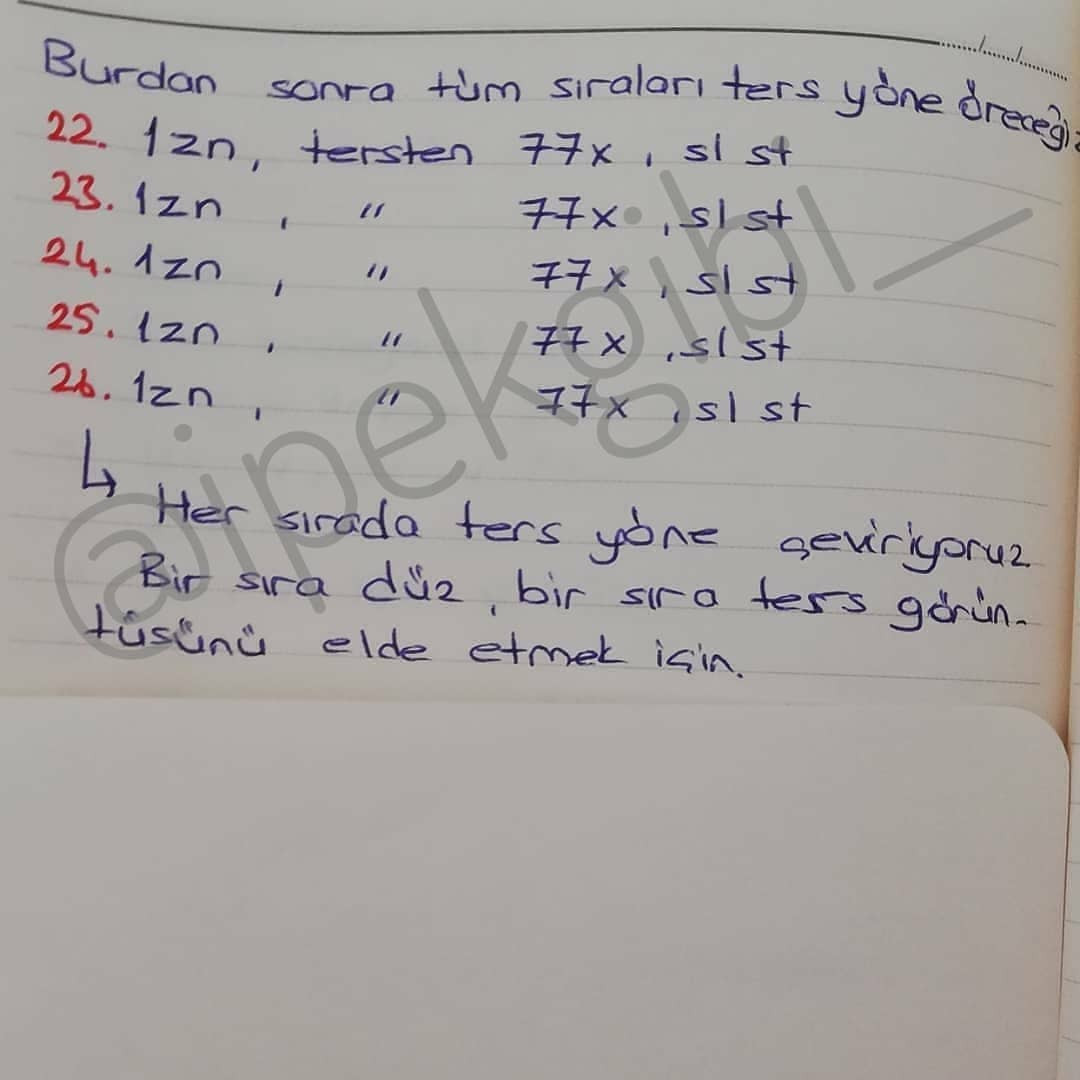 Burdan sonra tüm sıraları ters yöne öreceğiz
22. 1zn, tersten 77x, sl st
23. 1zn, " 77x, sl st
24. 1zn, " 77x, sl st
25. 1zn, " 77x, sl st
26. 1zn, " 77x, sl st
↳ Her sırada ters yöne çeviriyoruz
Bir sıra düz, bir sıra ters görün-
tüsünü elde etmek için.
@ipekgibi_